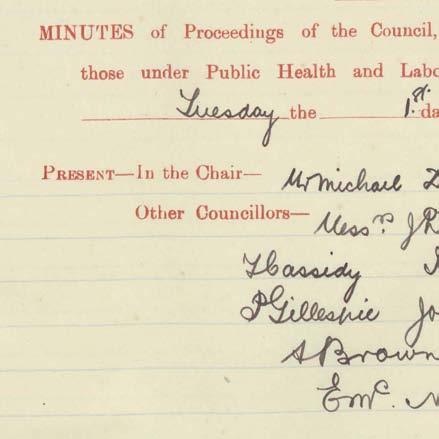 MINUTES of Proceedings of the Council,
those under Public Health and Labo
Tuesday the 1st. da
PRESENT—In the Chair— Mr Michael
Other Councillors— Messrs. J
H Cassidy
P Gillespie Jo
A Brown
E Mc.